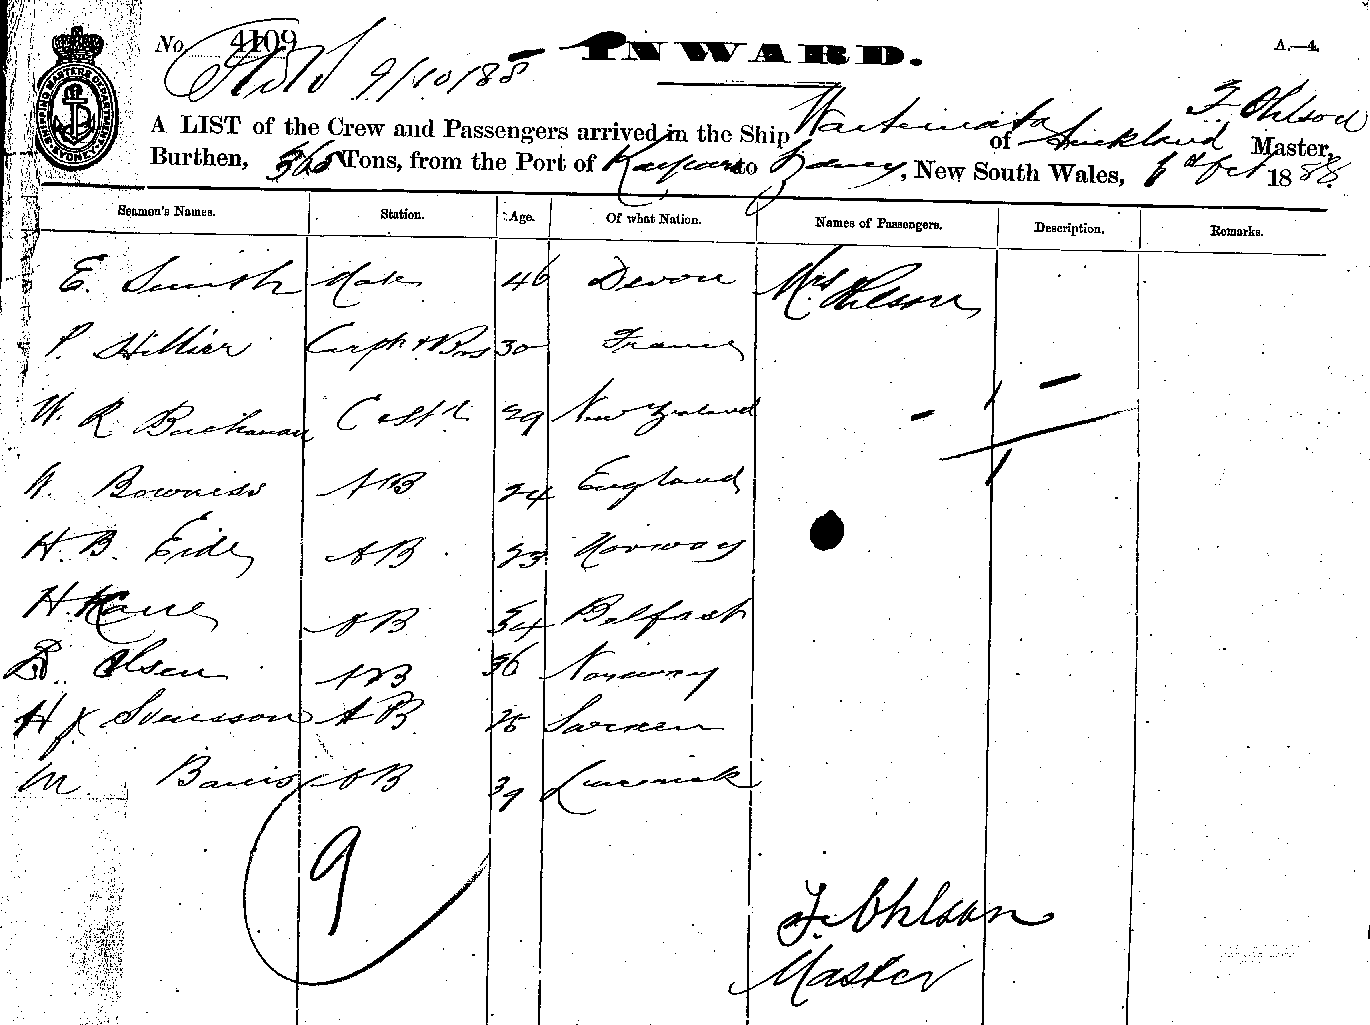 No 4109 INWARD. A.—4.
9/10/88
F. Ohlson
A LIST of the Crew and Passengers arrived in the Ship Waitemata of Auckland Master,
Burthen, 365 Tons, from the Port of Kaipara to Sydney, New South Wales, 6th Oct 1888.
SHIPPING MASTERS DEPARTMENT SYDNEY
Seamen's Names. Station. Age. Of what Nation. Names of Passengers. Description. Remarks.
E. Smith Mate 46 Devon Mrs Ohlson
P. Hillier 30 France
W. R Buchanan 29 New Zealand
W. Bowness AB 24 England
H. B. Eide AB 23 Norway
H. AB 34 Belfast
B. Olsen AB 36 Norway
H J Svensson AB 25 Sweden
M AB 39 Limerick
9
F. Ohlson
Master